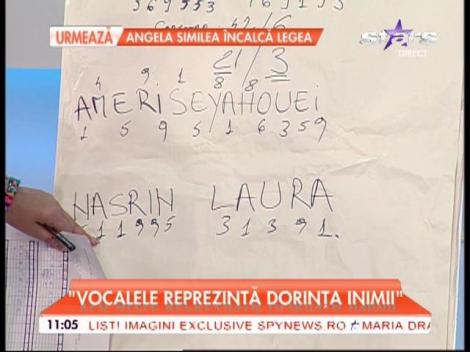 569553 1653
Consoane: 42/6
URMEAZĂ ANGELA SIMILEA ÎNCALCĂ LEGEA
stars
DIRECT
21/3
4 9 1 8 8
AMERISEYAHOUEI
1 5 9 5 1 6 3 5 9
NASRIN LAURA
1 1 9 9 5 3 1 3 9 1.
"VOCALELE REPREZINTĂ DORINȚA INIMII"
11:05 LIST! IMAGINI EXCLUSIVE SPYNEWS.RO MARIA DRA